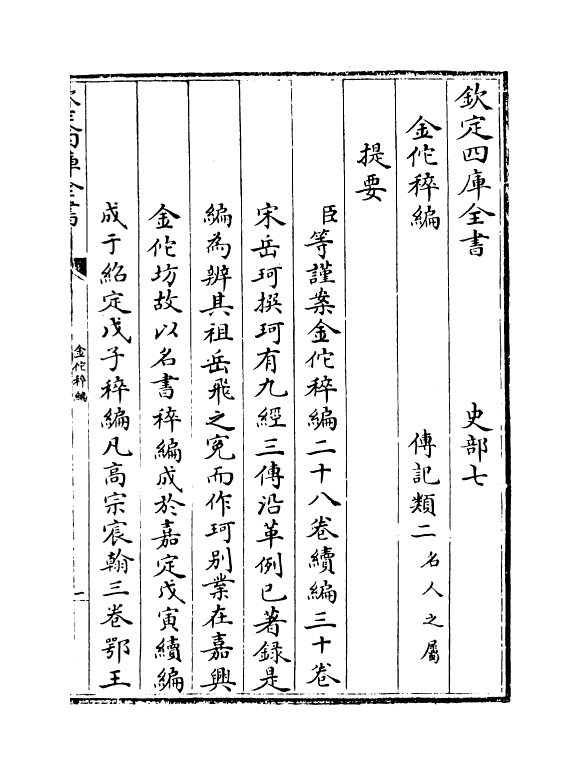 欽定四庫全書　　　　史部七
金佗稡編　　　　傳記類二名人之屬
提要
臣等謹案金佗稡編二十八卷續編三十卷
宋岳珂撰珂有九經三傳沿革例已著録是
編為辨其祖岳飛之寃而作珂别業在嘉興
金佗坊故以名書稡編成於嘉定戊寅續編
成于紹定戊子稡編凡高宗宸翰三卷鄂王
欽定四庫全書
金佗稡編
一